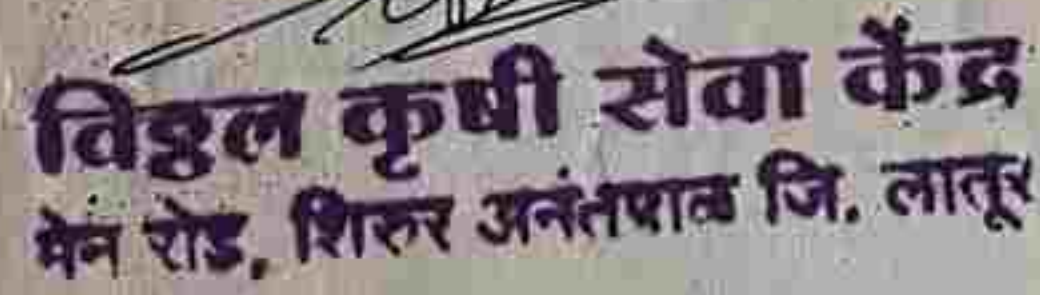 विठ्ठल कृषी सेवा केंद्र
मेन रोड, शिरुर अनंतपाळ जि. लातूर